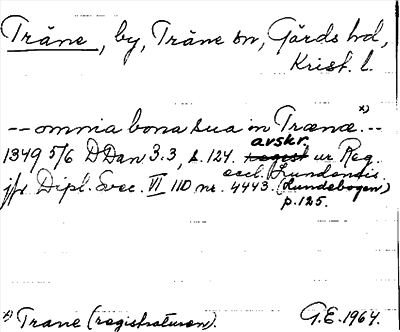 Träne, by, Träne sn, Gärds hd,
Krist. l.
-- omnia bona sua in Trænæ x) --
avskr.
1349 5/6 DDan 3.3, s. 124. regist ur Reg.
eccl. Lundensis.
jfr Dipl. Svec. VI IID nr. 4443. (Lundebogen)
p. 125.
x) Trane (registraturen). G.E. 1964.